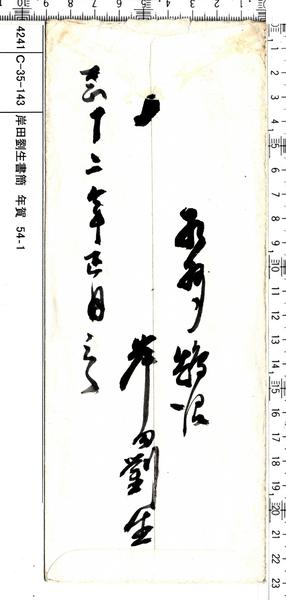 相州鵠沼
岸田劉生
十二年正月
4241 C-35-143 岸田劉生書簡 年賀 54-1